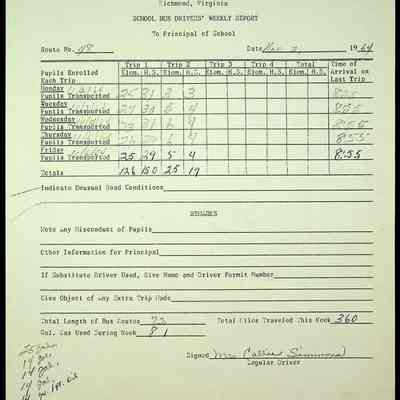 Richmond, Virginia
SCHOOL BUS DRIVERS' WEEKLY REPORT
To Principal of School
Route No. 48 Date 1964
Trip 1 Trip 2 Trip 3 Trip 4 Total Time of
Pupils Enrolled Elem. H.S. Elem. H.S. Elem. H.S. Elem. H.S. Elem. H.S. Arrival on
Each Trip Last Trip
Monday
Pupils Transported 25 31 3 3 8:55
Tuesday
Pupils Transported 27 30 5 4 8:55
Wednesday
Pupils Transported 31 6 4 8:55
Thursday
Pupils Transported 6 4 8:55
Friday
Pupils Transported 25 29 5 4 8:55
Totals 126 150 25 19
Indicate Unusual Road Conditions
REMARKS
Note Any Misconduct of Pupils
Other Information for Principal
If Substitute Driver Used, Give Name and Driver Permit Number
Give Object of Any Extra Trip Made
Total Length of Bus Routes 72 Total Miles Traveled This Week 360
Gal. Gas Used During Week 81
Signed Mrs. Callie Simmons
Regular Driver
25 gal.
19 gal.
14 gal.
14 gal.